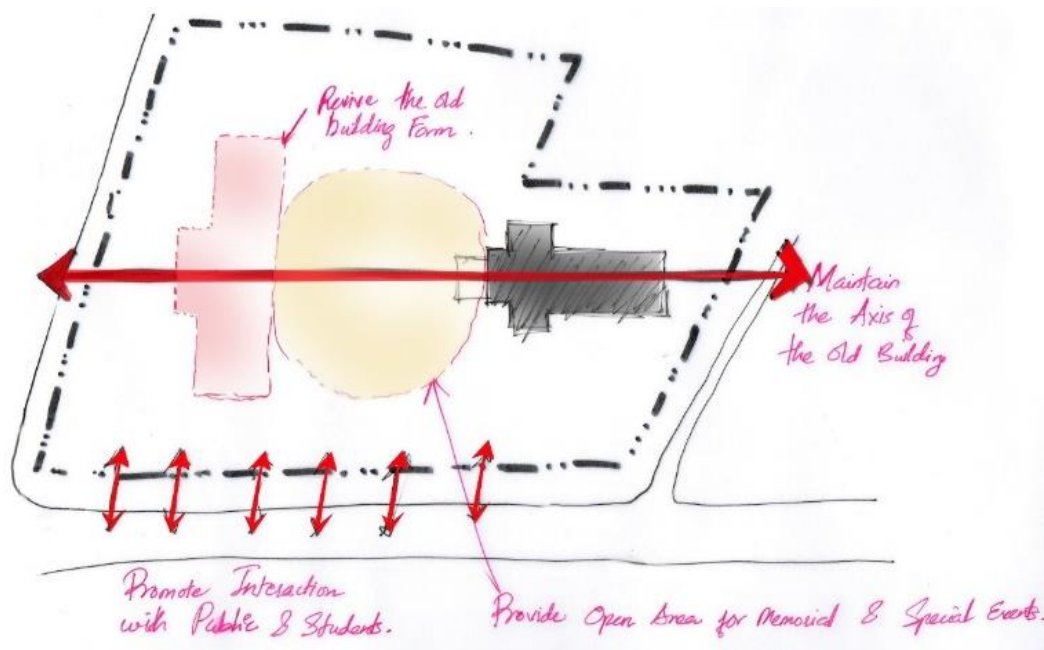 Revive the old
building Form.
Maintain
the Axis of
the old Building
Promote Interaction
with Public & Students.
Provide Open Area for Memorial & Special Events.